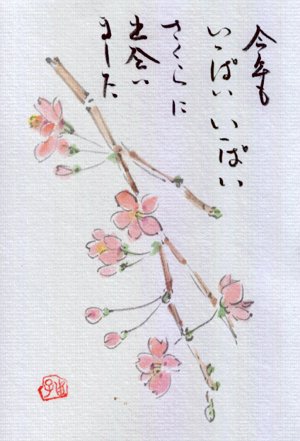 今年も
いっぱいいっぱい
さくらに
出会い
ました